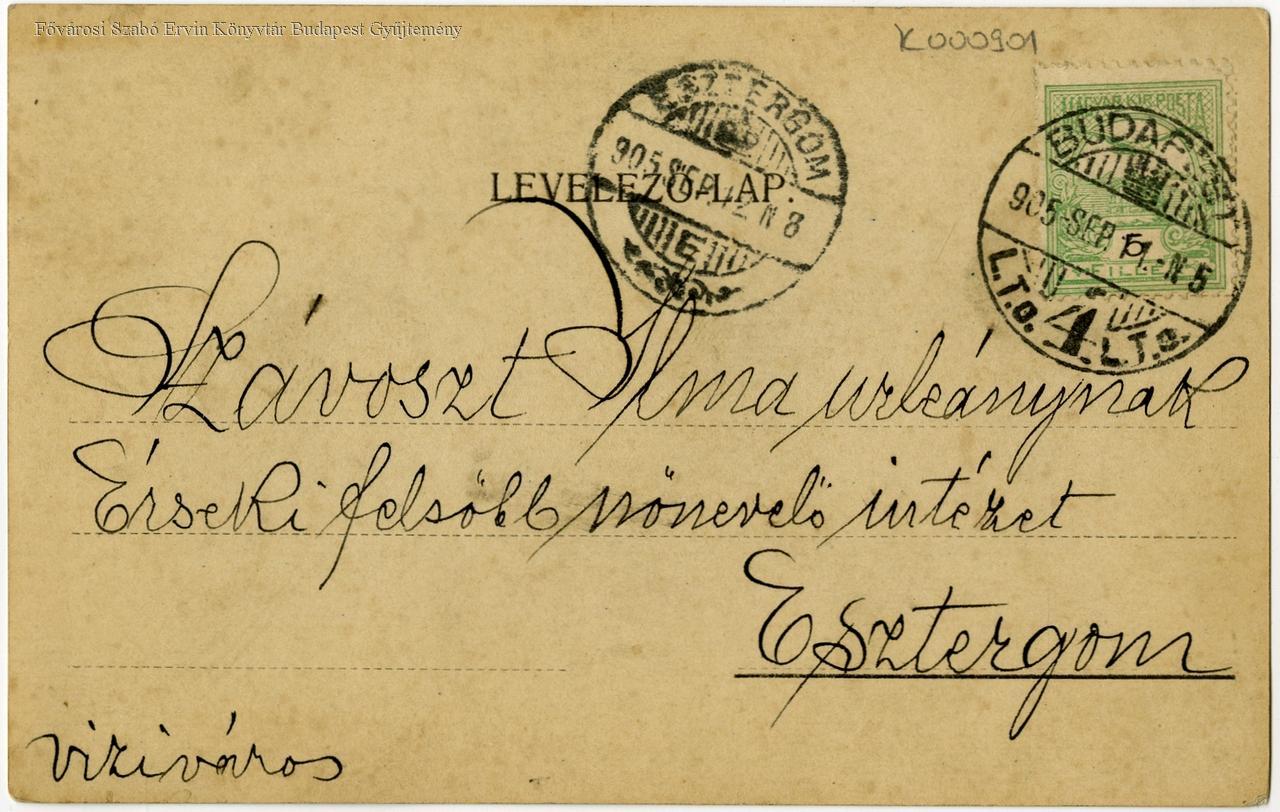 Fővárosi Szabó Ervin Könyvtár Budapest Gyűjtemény
K000901
MAGYAR KIR. POSTA
5
FILLÉR
BUDAPEST
905-SEP. 11.-N 5
L.T.O. 4. L.T.O.
ESZTERGOM
905 SEP. 12. N 8
E
LEVELEZŐ-LAP.
Závoszt Ilma urleánynak
Érseki felsőbb nőnevelő intézet
Esztergom
viziváros